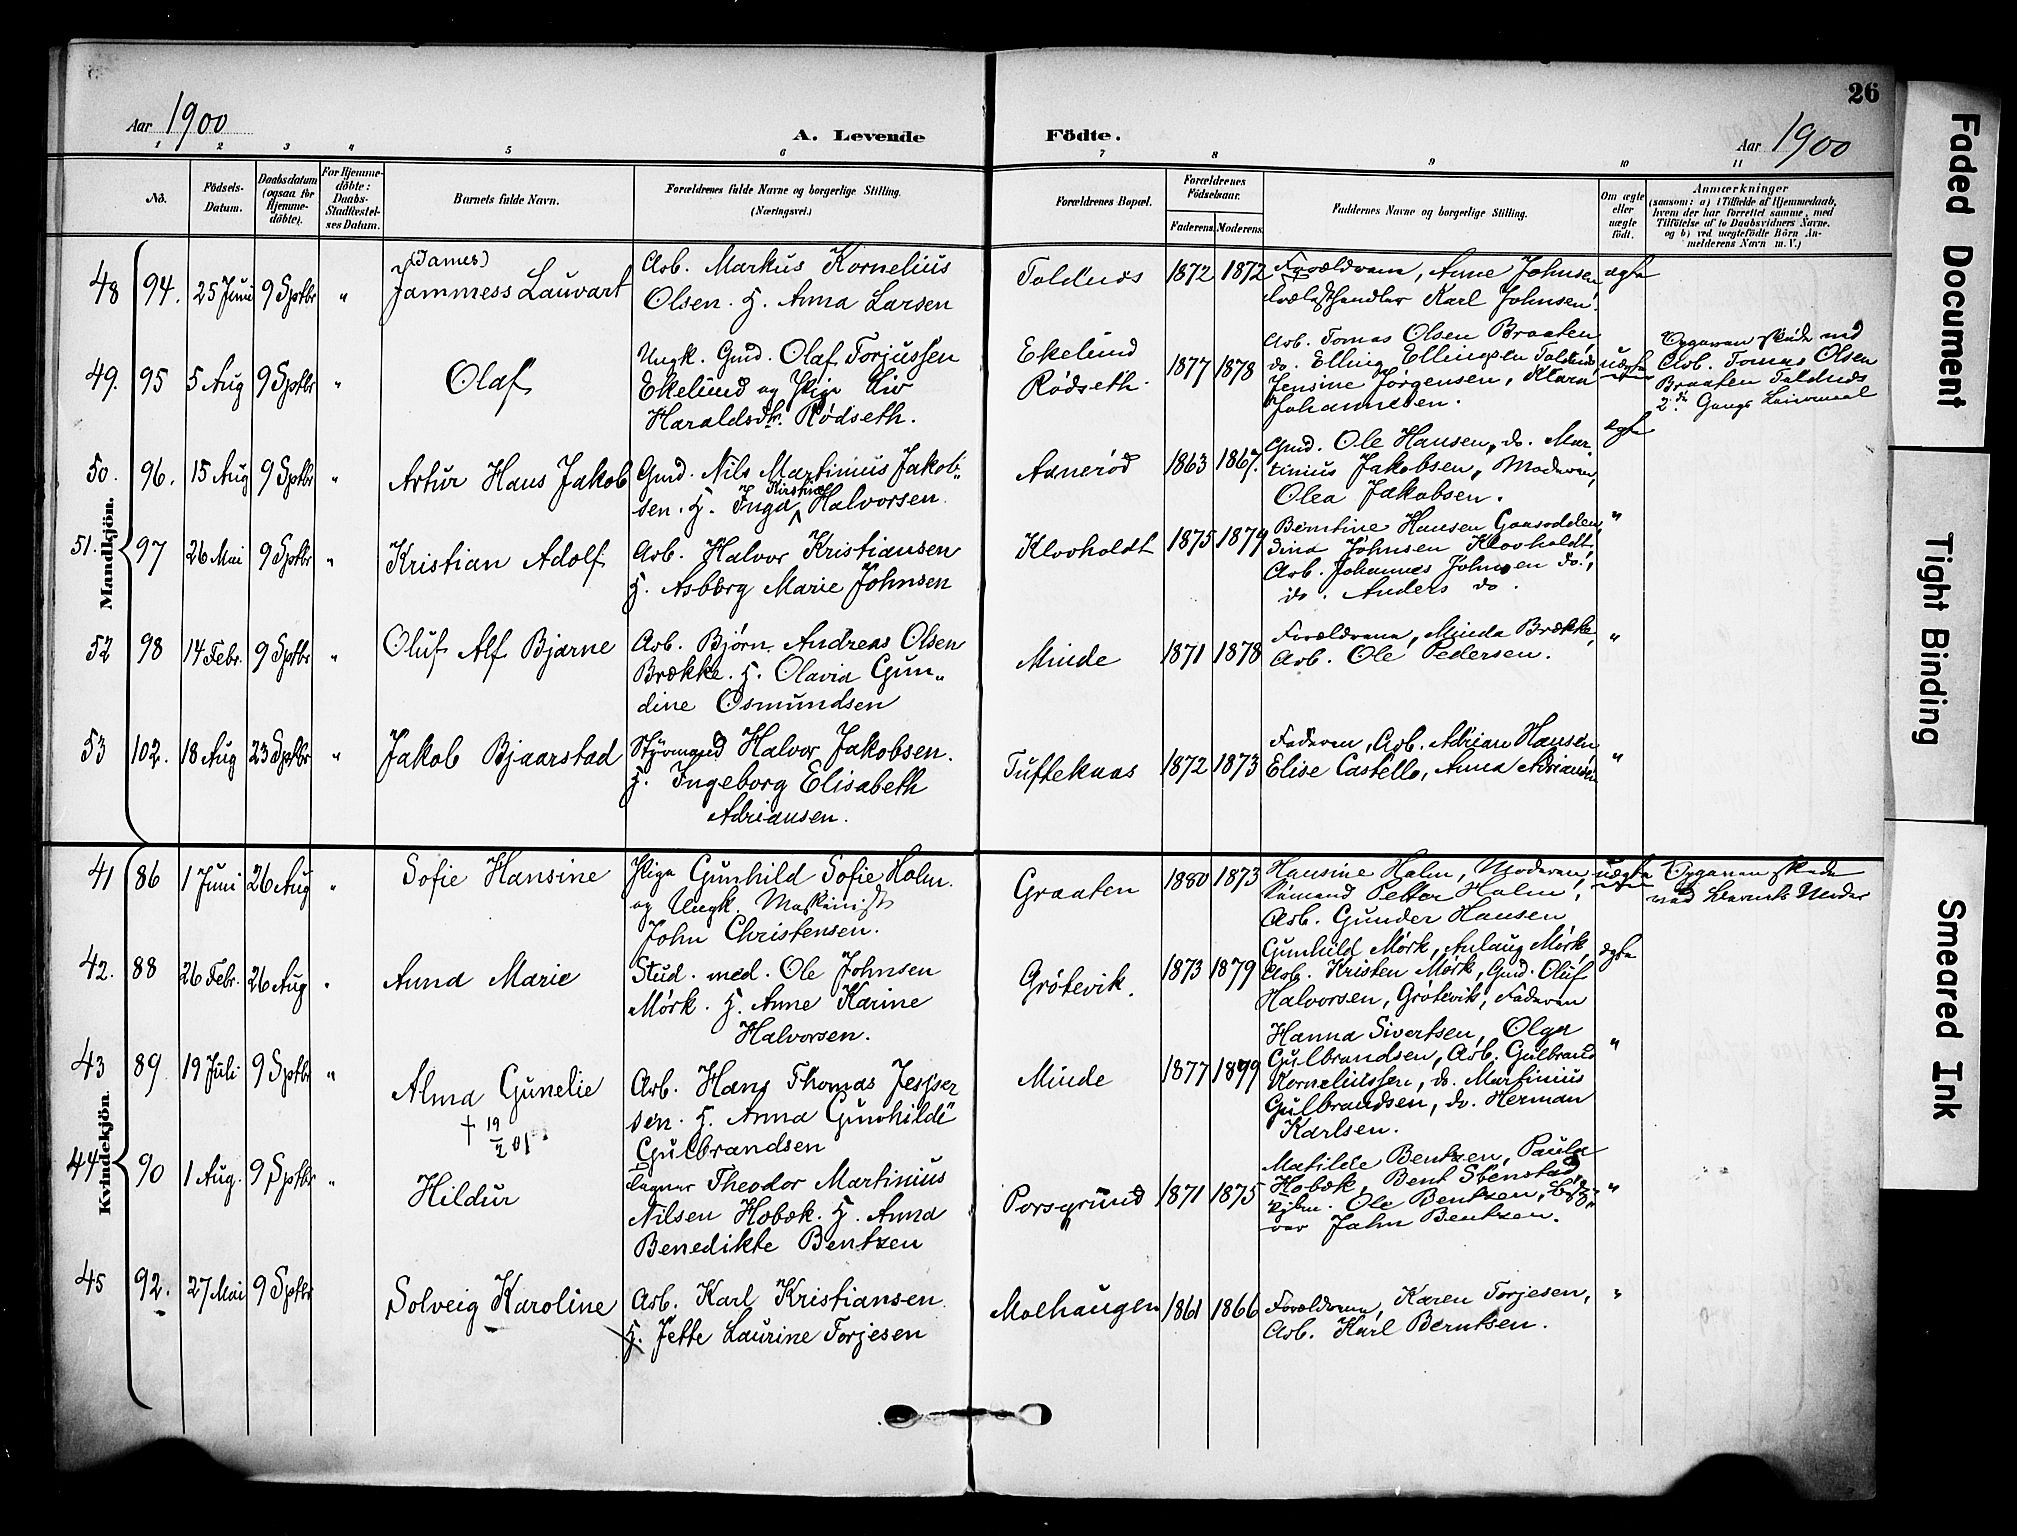 26
Aar 1900
A. Levende Födte.
Aar 1900
1 2 3 4 5 6 7 8 9 10 11
No.
Födsels-
Datum.
Daabsdatum
(ogsaa för
Hjemme-
döbte).
For Hjemme-
döbte:
Daabs-
Stadfæstel-
ses Datum.
Barnets fulde Navn.
Forældrenes fulde Navne og borgerlige Stilling.
(Næringsvei.)
Forældrenes Bopæl.
Forældrenes
Födselsaar.
Faderens. Moderens.
Faddernes Navne og borgerlige Stilling.
Om ægte
eller
uægte
födt.
Anmærkninger
(saasom: a) i Tilfælde af Hjemmedaab,
hvem der har forrettet samme, med
Tilföielse af to Daabsvidners Navne.
og b) ved uægtefödte Börn An-
melderens Navn m. V.)
Mandkjön.
48 94. 25 Juni 9 Sptbr "
(James)
Jammess Lauvart
Arb. Markus Kornelius
Olsen. H. Anna Larsen
Toldnes 1872 1872
Forældrene, Anne Johnsen
Trælasthandler Karl Johnsen.
ægte
49. 95 5 Aug 9 Sptbr "
Olaf
Ungk. Gmd. Olaf Torjussen
Ekelund og Pige Liv
Haraldsdtr. Rødseth.
Ekelund
Rødseth.
1877 1878
Arb. Tomas Olsen Braaten
do. Elling Ellingsen Toldnes
Jensine Jörgensen, Klara
Johannesen.
uægte
Opgaven skede ved
Arb. Tomas Olsen
Braaten Toldnes
2den Gangs Leiermaal
50. 96. 15 Aug 9 Sptbr "
Artur Hans Jakob
Gmd. Nils Martinius Jakob-
sen. H. Inga Kirstine Halvorsen.
Aanerød 1863 1867.
Gmd. Ole Hansen, do. Mar-
tinius Jakobsen, Moderen,
Olea Jakobsen.
ægte
51. 97 26 Mai 9 Sptbr "
Kristian Adolf
Arb. Halvor Kristiansen
H. Asbörg Marie Johnsen
Klovholdt 1875 1879
Berntine Hansen Gaasodden,
Dina Johnsen Klovholdt,
Arb. Johannes Johnsen do.,
do. Anders do.
"
52 98 14 Febr. 9 Sptbr "
Oluf Alf Bjarne
Arb. Bjørn Andreas Olsen
Brække. H. Olavia Gun-
dine Osmundsen
Minde 1871 1878
Forældrene, Minda Brække,
Arb. Ole Pedersen.
"
53 102. 18 Aug 23 Sptbr "
Jakob Bjaarstad
Styrmand Halvor Jakobsen.
H. Ingeborg Elisabeth
Adriansen.
Tufteknas 1872 1873
Faderen, Arb. Adrian Hansen,
Elise Castello, Anna Adriansen
"
Kvindekjön.
41 86 1 Juni 26 Aug "
Sofie Hansine
Pige Gunhild Sofie Holm.
og Ungk. Maskinist
John Christensen.
Graaten 1880 1873
Hansine Holm, Moderen,
Sömand Petter Holm,
Arb. Gunder Hansen
uægte
Opgaven skede
ved Barnets Moder
42. 88 26 Febr. 26 Aug "
Anna Marie
Stud. med. Ole Johnsen
Mørk. H. Anne Karine
Halvorsen.
Grötevik. 1873 1879
Gunhild Mørk, Anlaug Mørk,
Arb. Kristen Mørk, Gmd. Oluf
Halvorsen, Grötevik, Faderen
ægte
43 89 19 Juli 9 Sptbr "
Alma Gunelie
† 19/2 01
Arb. Hans Thomas Jesper
sen. H. Anna Gunhilde
Gulbrandsen
Minde 1877 1899
Hanna Sivertsen, Olga
Gulbrandsen, Arb. Gulbrand
Korneliussen, do. Martinius
Gulbrandsen, do. Herman
Karlsen.
"
44 90 1 Aug. 9 Sptbr "
Hildur
Theodor Martinius
Nilsen Hobæk. H. Anna
Benedikte Bentzen
Porsgrund 1871 1875
Matilde Bentzen, Paula
Hobæk, Bent Stenstad,
Ole Bentzen,
John Bentzen.
"
45 92. 27 Mai 9 Sptbr
Solveig Karoline
Arb. Karl Kristiansen
H. Jette Laurine Torjesen
Molhaugen 1861 1866
Forældrene, Karen Torjesen,
Arb. Karl Berntsen.
"
Faded Document
Tight Binding
Smeared Ink